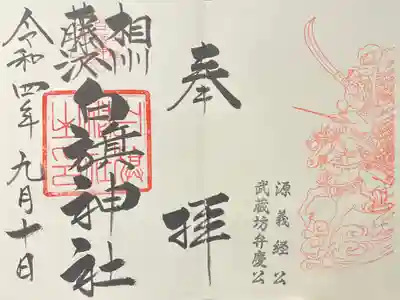 源義経公
武蔵坊弁慶公
奉拝
相州
藤沢
白旗神社
令和四年九月十日